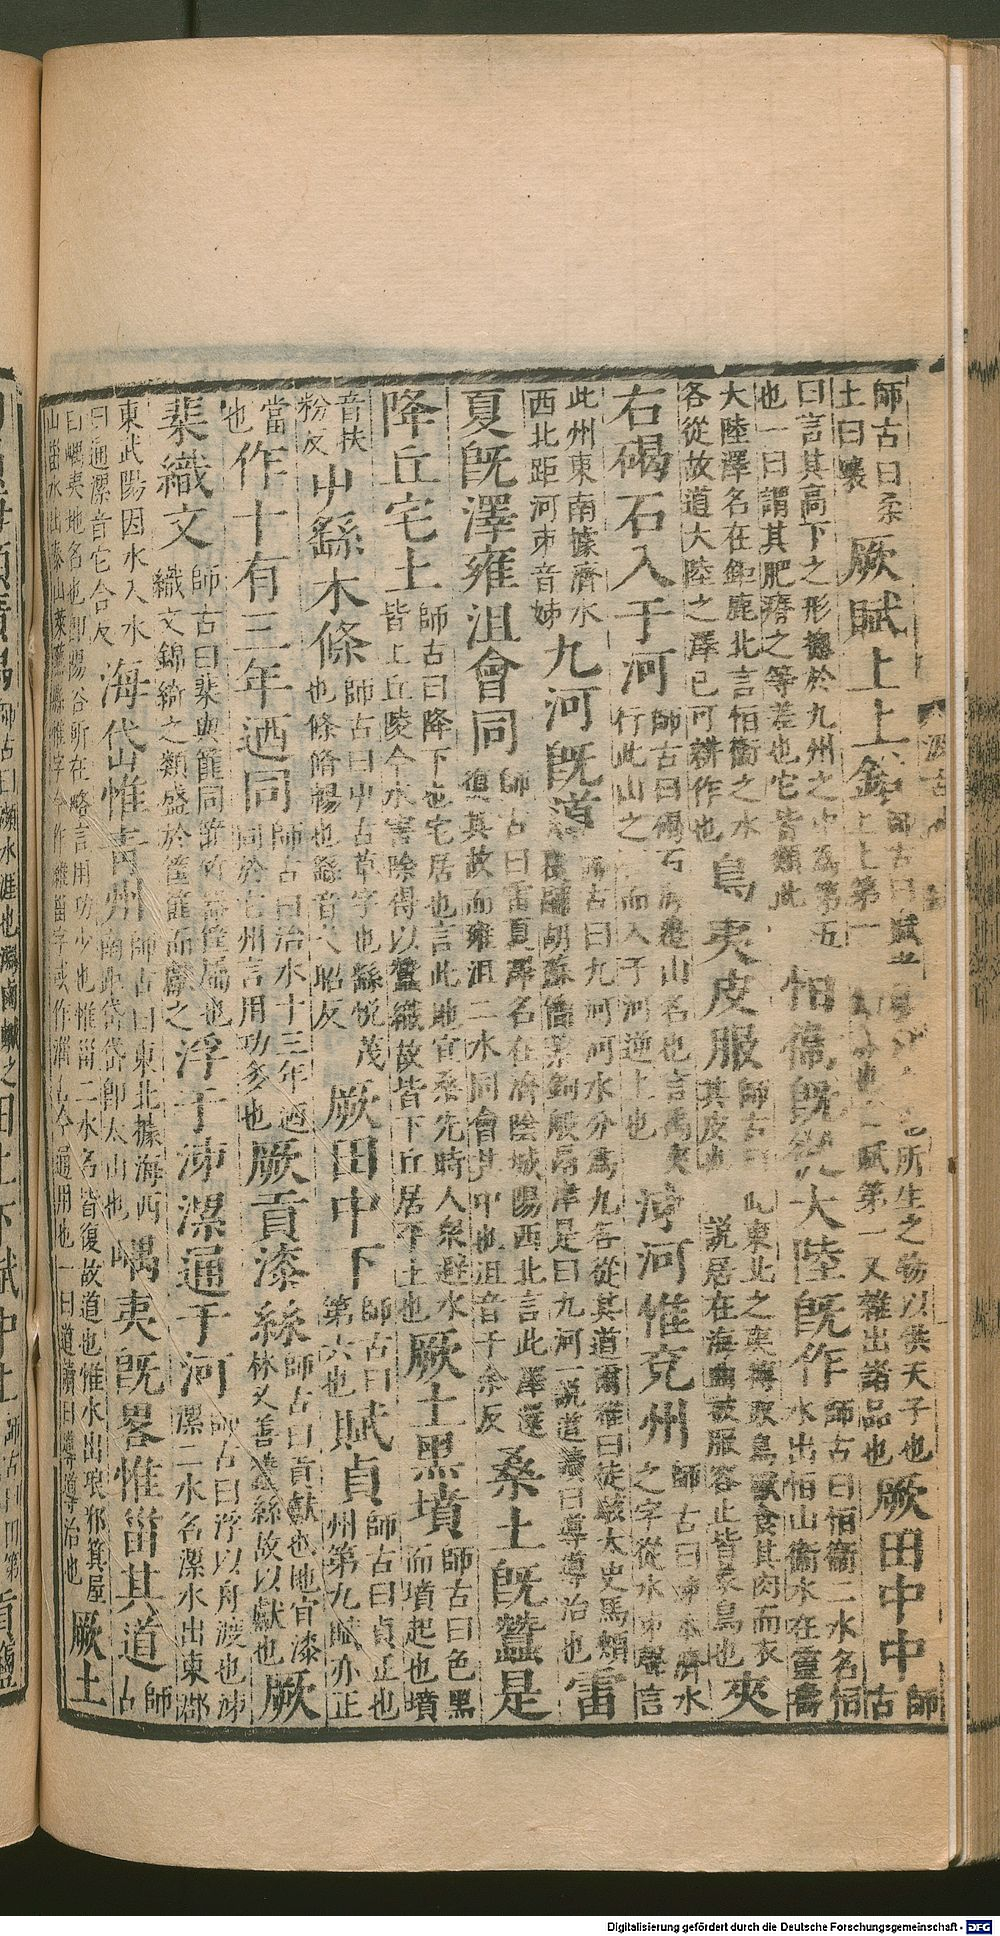 師古曰柔土曰壤厥賦上上錯師古曰賦者 所生之物以供天子也 上上第一 賦第一又雜出諸品也厥田中中師古
曰言其高下之形總於九州之中為第五也一曰謂其肥瘠之等差也它皆類此恒衛既從大陸既作師古曰恒衛二水名恒水出恒山衛水在靈壽
大陸澤名在鉅鹿北言恒衛之水各從故道大陸之澤已可耕作也鳥夷皮服師古曰此東北之夷搏取鳥獸食其肉而衣其皮也 說居在海曲被服容止皆象鳥也夾
右碣石入于河師古曰碣石海邊山名也言禹夾行此山之 而入于河逆上也沛河惟兗州師古曰沛本濟水之字從水𠂔聲言
此州東南據濟水西北距河𠂔音姊九河既道師古曰九河河水分為九各從其道爾雅曰徒駭大史馬頰覆鬴胡蘇簡絜鉤般鬲津是曰九河一說道讀曰導導治也雷
夏既澤雍沮會同師古曰雷夏澤名在濟陰城陽西北言此澤還復其故而雍沮二水同會其中也沮音千余反桑土既蠶是
降丘宅土師古曰降下也宅居也言此地宜桑先時人衆避水皆上丘陵今水害除得以蠶織故皆下丘居平土也厥土黑墳師古曰色黑而墳起也墳
音扶粉反屮繇木條師古曰屮古草字也繇悅茂也條脩暢也繇音弋昭反厥田中下師古曰第六也賦貞師古曰貞正也州第九賦亦正
當也作十有三年迺同師古曰治水十三年迺同於它州言用功多也厥貢漆絲師古曰貢獻也地宜漆林又善蠶絲故以獻也厥
棐織文師古曰棐與篚同篚竹器筐屬也織文錦綺之類盛於筐篚而獻之浮于沛漯通于河師古曰浮以舟渡也沛漯二水名漯水出東郡
東武陽因水入水曰通漯音它合反海岱惟青州師古曰東北據海西南距岱岱即太山也嵎夷既畧惟甾其道師古
曰嵎夷地名也即陽谷所在略言用功少也惟甾二水名皆復故道也惟水出琅邪箕屋山甾水出泰山萊蕪縣惟字今作濰甾字或作淄古今通用也一曰道讀曰導導治也厥土
Digitalisierung gefördert durch die Deutsche Forschungsgemeinschaft - DFG